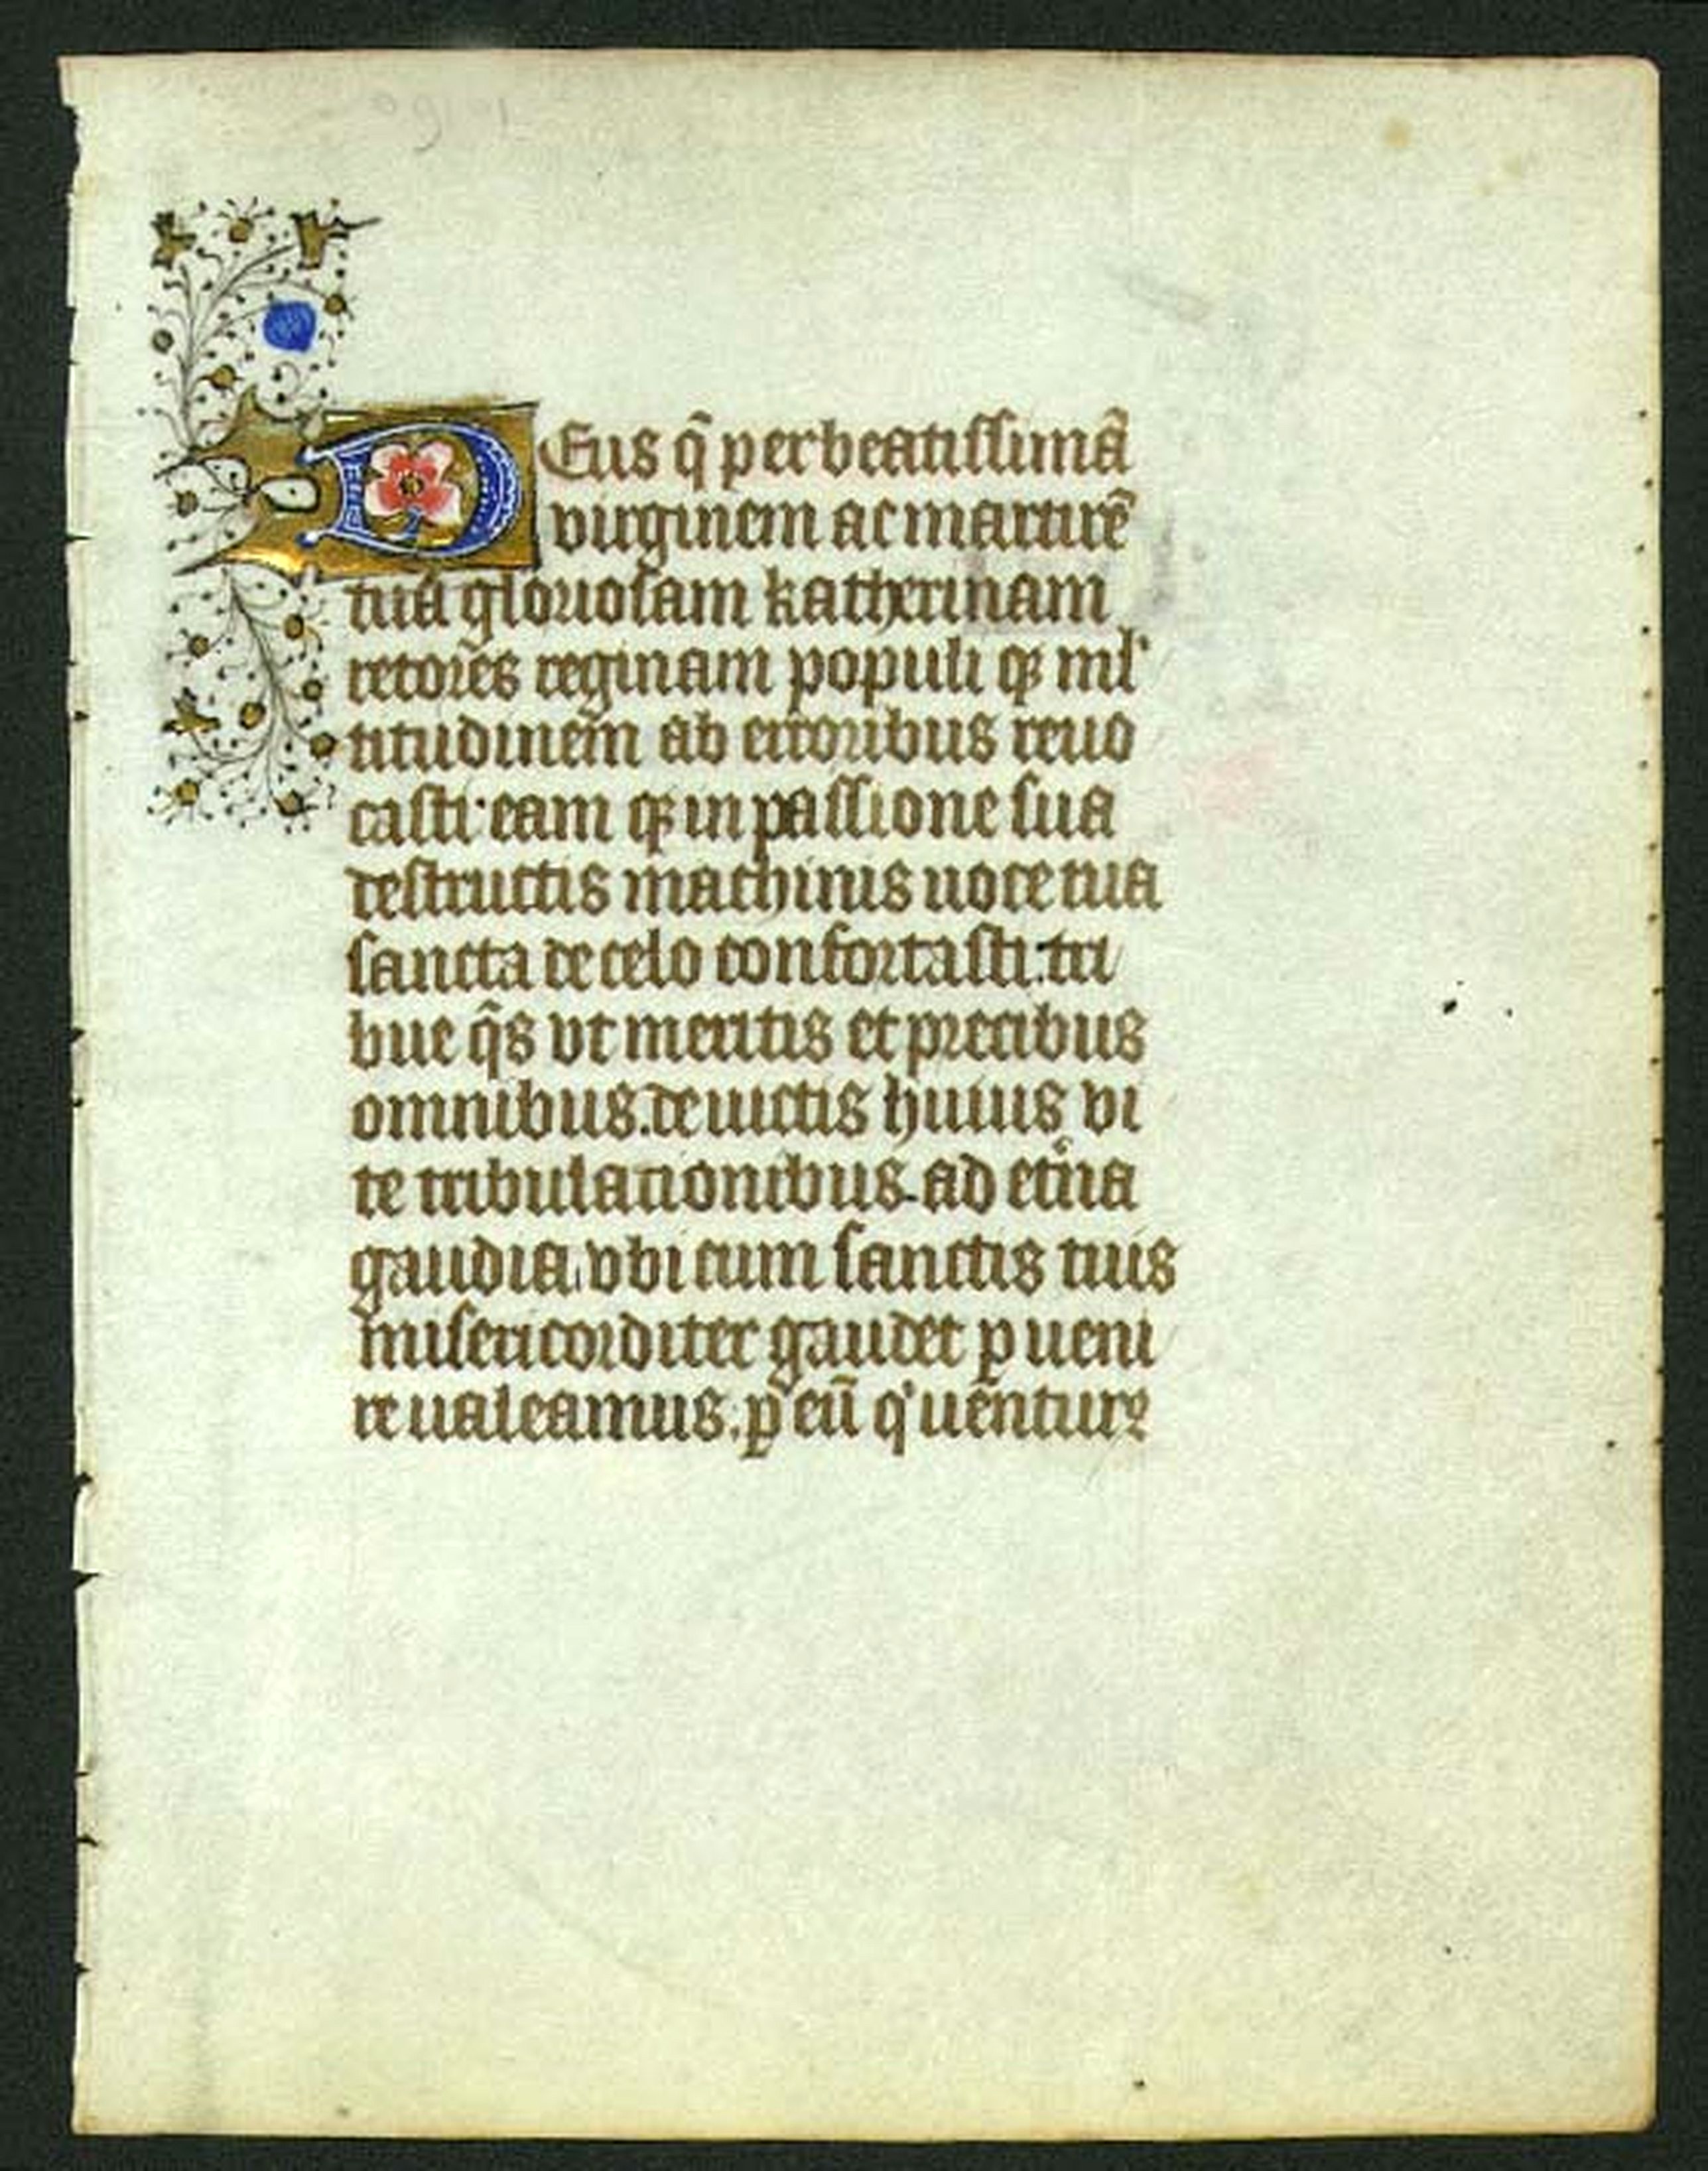 DEus q̃ per beatissimã
virginem ac martirẽ
tuã gloriosam katherinam
retores reginam populi qꝫ ml'
titudinem ab erroribus reuo
casti· eam qꝫ in passione sua
destructis machinis uoce tua
sancta de celo confortasti: tri
bue q̃s vt meritis et precibus
omnibus. deuictis huius vi
te tribulationibus. ad et̾na
gaudia, vbi cum sanctis tuis
misericorditer gaudet ꝑueni
re ualeamus. ꝑ eũ q' uẽnturꝰ